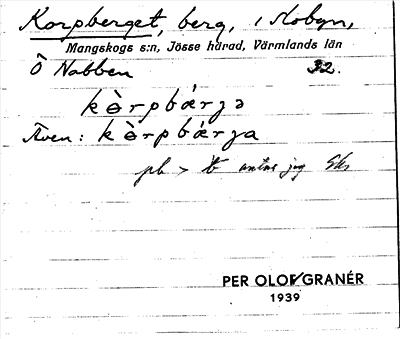 Korpberget, berg, i Nobyn,
Mangskogs s:n, Jösse härad, Värmlands län
Ö Nabben 32.
kɵ̀rpbárjə
Även: kɵ̀rpbárja
pb > antar jag
PER OLOF GRANÉR
1939